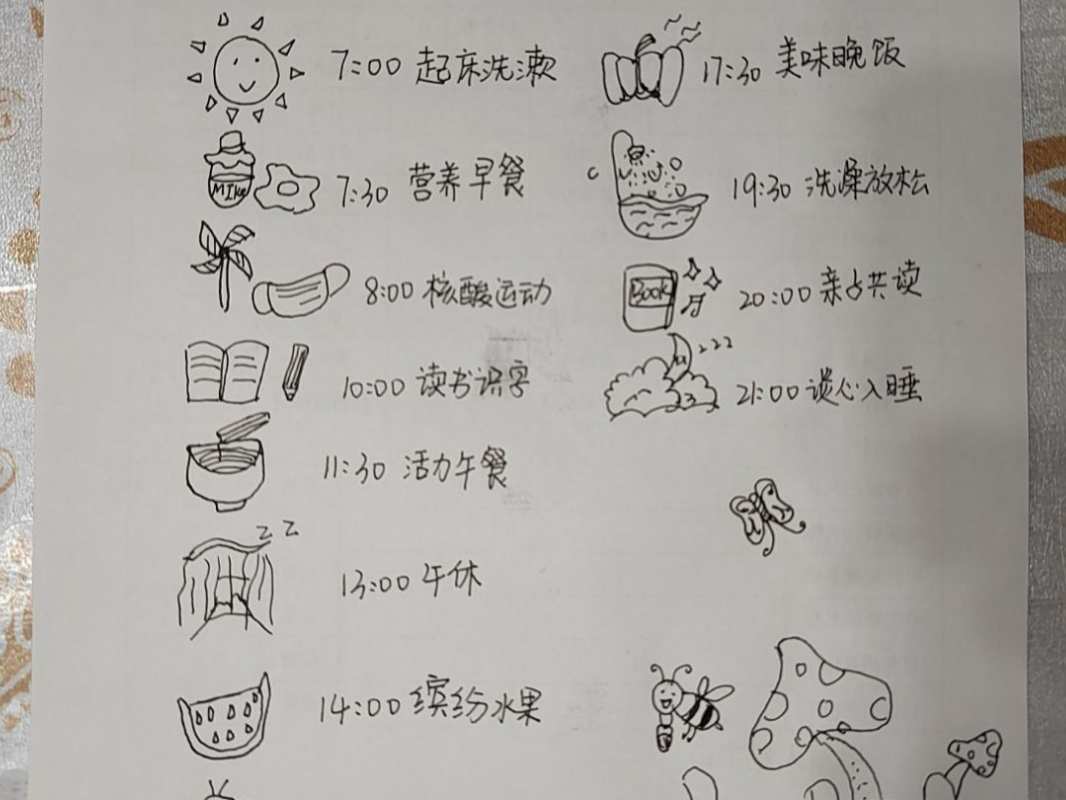 7:00 起床洗漱
MIKe
7:30 营养早餐
8:00 核酸运动
10:00 读书识字
11:30 活力午餐
z z
13:00 午休
14:00 缤纷水果
17:30 美味晚饭
19:30 洗澡放松
Book
20:00 亲占共读
zzz
21:00 谈心入睡